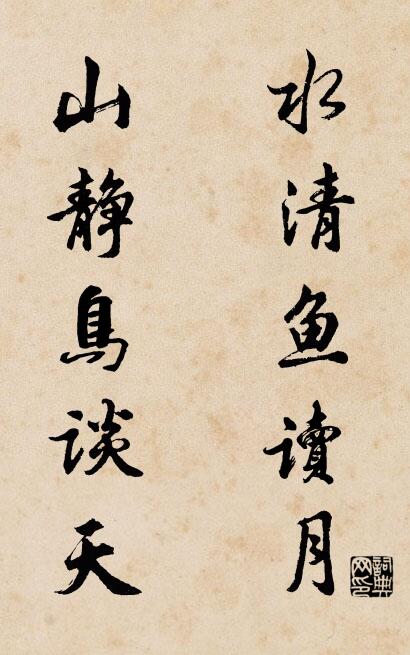 水清鱼讀月
山静鳥谈天
詞典网印